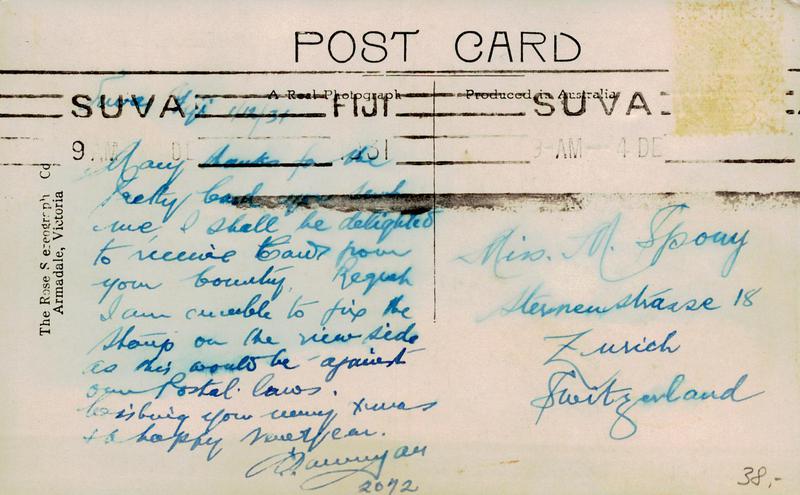 POST CARD
A Real Photograph
Produced in Australia
Suva Fiji 1/12/31
SUVA FIJI SUVA
9 AM 31 9-AM-4 DE
Many thanks for the
Pretty Card you sent
me, I shall be delighted
to receive Cards from
your Country. Regret
I am unable to fix the
stamp on the view side
as this would be against
our Postal laws.
Wishing you merry Xmas
& a happy new year.
2072
The Rose Stereograph Co
Armadale, Victoria
Miss. M. Spony
Sternenstrasse 18
Zurich
Switzerland
38.-